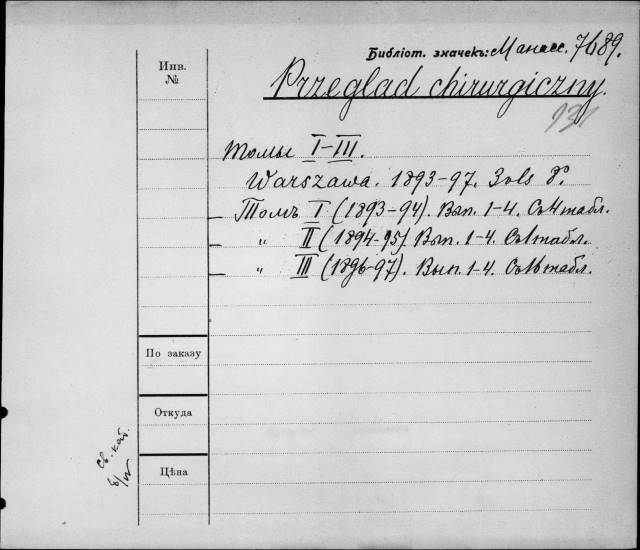 Библіот. значекъ: Манасс. 7689.
Инв.
№
Przeglad chirurgiczny.
931
Томы I-III.
Warszawa. 1893-97. 3 vls 8°.
Томъ I (1893-94). Вып. 1-4. Съ 4 табл.
" II (1894-95). Вып. 1-4. Съ 1 табл.
" III (1896-97). Вып. 1-4. Съ 16 табл.
По заказу
Откуда
Цѣна
Св. кат.